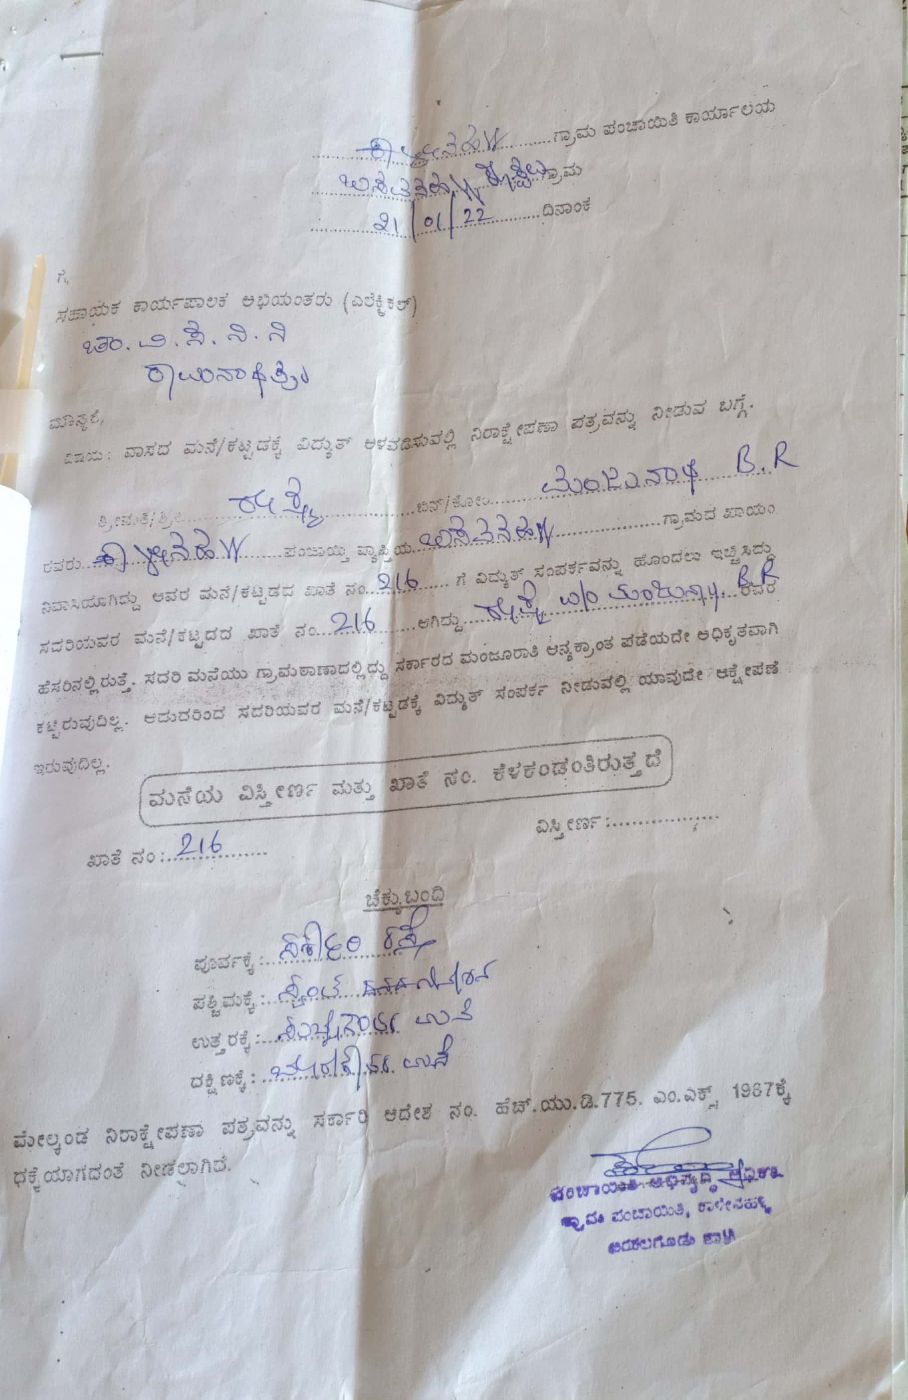 ಕಾಳೇನಹಳ್ಳಿ ಗ್ರಾಮ ಪಂಚಾಯಿತಿ ಕಾರ್ಯಾಲಯ
ಗ್ರಾಮ
21/01/22 ದಿನಾಂಕ
ಗೆ,
ಸಹಾಯಕ ಕಾರ್ಯಪಾಲಕ ಅಭಿಯಂತರು (ಎಲೆಕ್ಟ್ರಿಕಲ್)
ಚಾ.ವಿ.ಸ.ನಿ.ನಿ
ಮಾನ್ಯರೆ,
ವಿಷಯ: ವಾಸದ ಮನೆ/ಕಟ್ಟಡಕ್ಕೆ ವಿದ್ಯುತ್ ಅಳವಡಿಸುವಲ್ಲಿ ನಿರಾಕ್ಷೇಪಣಾ ಪತ್ರವನ್ನು ನೀಡುವ ಬಗ್ಗೆ.
ಶ್ರೀಮತಿ/ಶ್ರೀ ಬಿನ್/ಕೋಂ ಮಂಜುನಾಥ B.R
ರವರು ಕಾಳೇನಹಳ್ಳಿ ಪಂಚಾಯ್ತಿ ವ್ಯಾಪ್ತಿಯ ಬಸವನಹಳ್ಳಿ ಗ್ರಾಮದ ಖಾಯಂ
ನಿವಾಸಿಯಾಗಿದ್ದು ಅವರ ಮನೆ/ಕಟ್ಟಡದ ಖಾತೆ ನಂ. 216 ಗೆ ವಿದ್ಯುತ್ ಸಂಪರ್ಕವನ್ನು ಹೊಂದಲು ಇಚ್ಛಿಸಿದ್ದು
ಸದರಿಯವರ ಮನೆ/ಕಟ್ಟಡದ ಖಾತೆ ನಂ. 216 ಆಗಿದ್ದು w/o ಮಂಜುನಾಥ. B.R ರವರ
ಹೆಸರಿನಲ್ಲಿರುತ್ತೆ. ಸದರಿ ಮನೆಯು ಗ್ರಾಮಠಾಣಾದಲ್ಲಿದ್ದು ಸರ್ಕಾರದ ಮಂಜೂರಾತಿ ಅನ್ಯಕ್ರಾಂತ ಪಡೆಯದೇ ಅಧಿಕೃತವಾಗಿ
ಕಟ್ಟಿರುವುದಿಲ್ಲ. ಆದುದರಿಂದ ಸದರಿಯವರ ಮನೆ/ಕಟ್ಟಡಕ್ಕೆ ವಿದ್ಯುತ್ ಸಂಪರ್ಕ ನೀಡುವಲ್ಲಿ ಯಾವುದೇ ಆಕ್ಷೇಪಣೆ
ಇರುವುದಿಲ್ಲ.
ಮನೆಯ ವಿಸ್ತೀರ್ಣ ಮತ್ತು ಖಾತೆ ನಂ. ಕೆಳಕಂಡಂತಿರುತ್ತದೆ
ಖಾತೆ ನಂ: 216 ವಿಸ್ತೀರ್ಣ:
ಚೆಕ್ಕುಬಂದಿ
ಪೂರ್ವಕ್ಕೆ: ರಸ್ತೆ
ಪಶ್ಚಿಮಕ್ಕೆ:
ಉತ್ತರಕ್ಕೆ: ಮನೆ
ದಕ್ಷಿಣಕ್ಕೆ: ಮನೆ
ಮೇಲ್ಕಂಡ ನಿರಾಕ್ಷೇಪಣಾ ಪತ್ರವನ್ನು ಸರ್ಕಾರಿ ಆದೇಶ ನಂ. ಹೆಚ್.ಯು.ಡಿ.775. ಎಂ.ಎಕ್ಸ್ 1987ಕ್ಕೆ
ಧಕ್ಕೆಯಾಗದಂತೆ ನೀಡಲಾಗಿದೆ.
ಪಂಚಾಯಿತಿ ಅಭಿವೃದ್ಧಿ ಅಧಿಕಾರಿ
ಗ್ರಾಮ ಪಂಚಾಯಿತಿ, ಕಾಳೇನಹಳ್ಳಿ
ಅರಕಲಗೂಡು ತಾಲ್ಲೂಕು